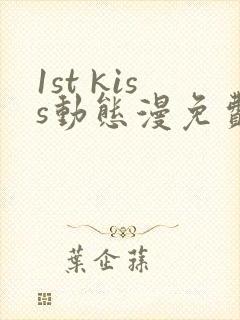 1st kis
s動態漫免費
葉企蓀